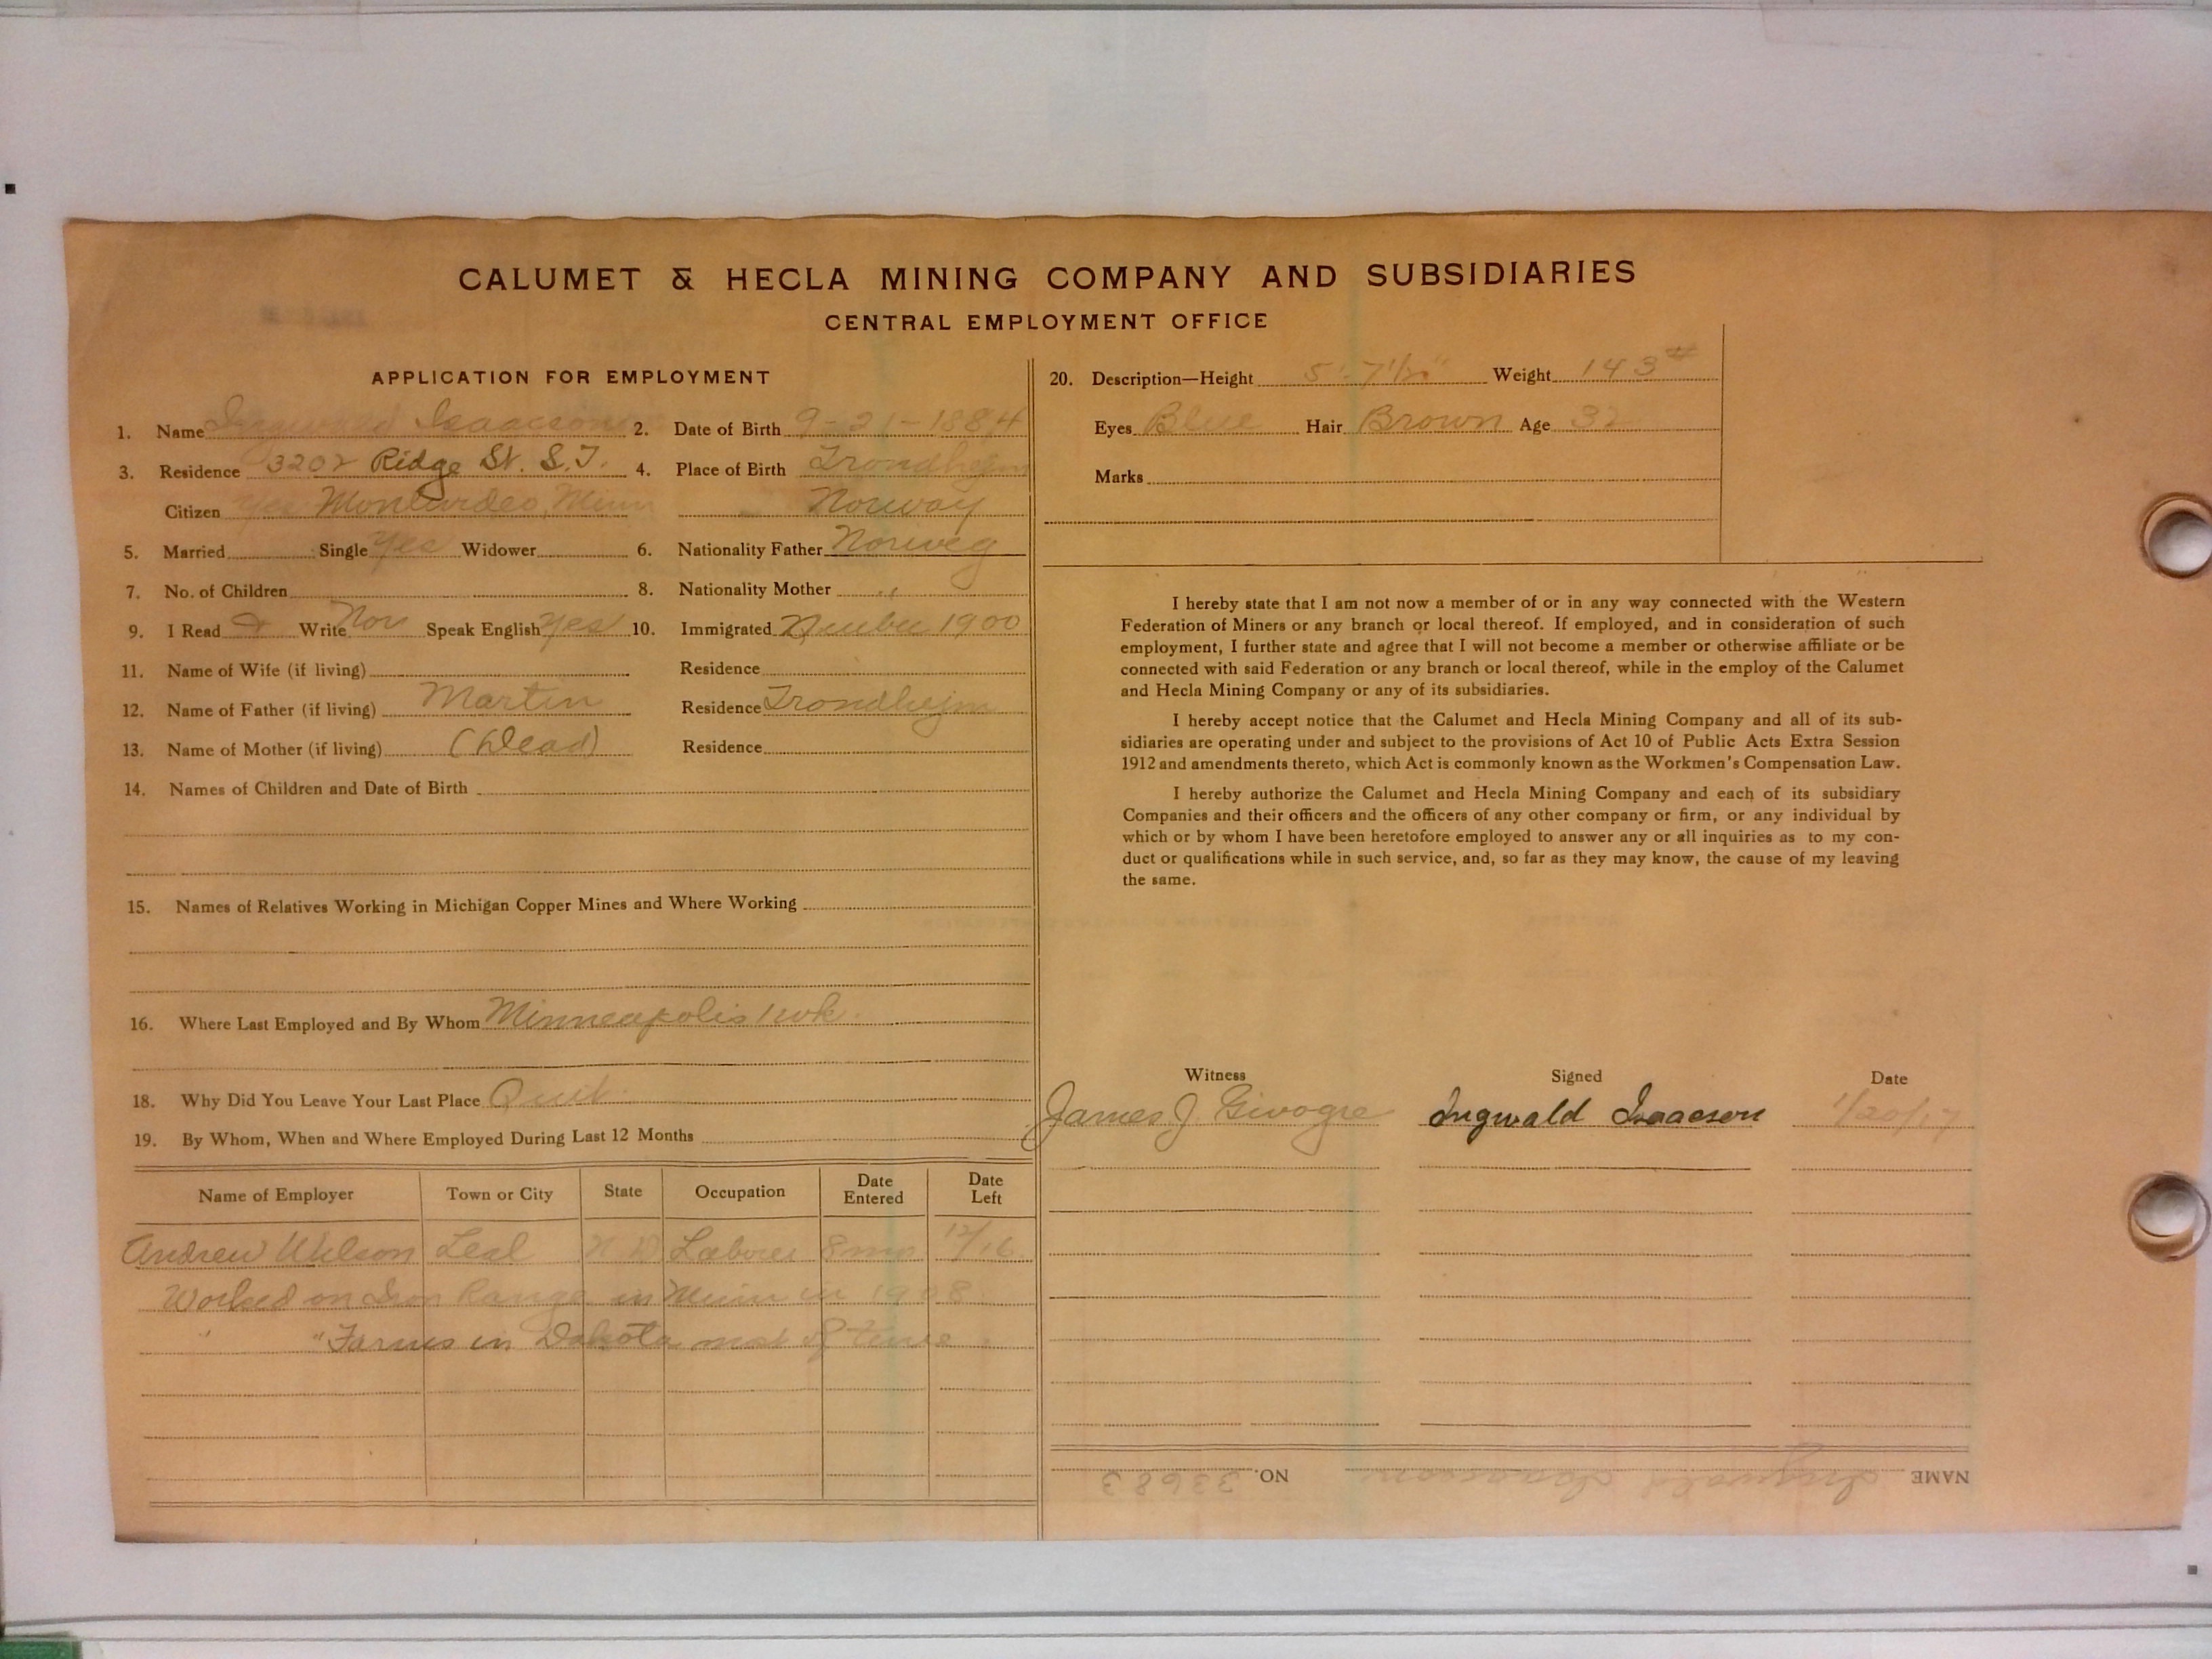 CALUMET & HECLA MINING COMPANY AND SUBSIDIARIES
CENTRAL EMPLOYMENT OFFICE
APPLICATION FOR EMPLOYMENT
1. Name Ingwald Isaacson 2. Date of Birth 9-21-1884
3. Residence 3202 Ridge St. S.T. 4. Place of Birth Trondhejm
Citizen Yes Montevideo, Minn Norway
5. Married Single Yes Widower 6. Nationality Father Norweg
7. No. of Children 8. Nationality Mother "
9. I Read & Write Nor Speak English Yes 10. Immigrated 1900
11. Name of Wife (if living) Residence
12. Name of Father (if living) Martin Residence Trondhejm
13. Name of Mother (if living) (Dead) Residence
14. Names of Children and Date of Birth
15. Names of Relatives Working in Michigan Copper Mines and Where Working
16. Where Last Employed and By Whom Minneapolis 1 wk.
18. Why Did You Leave Your Last Place Quit
19. By Whom, When and Where Employed During Last 12 Months
Name of Employer Town or City State Occupation Date Entered Date Left
Andrew Leal N D Laborer 8 mo 12/16
Worked on Iron Range in Minn in 1908
" " Farms in Dakota most of time.
20. Description—Height 5'-7 1/2" Weight 143#
Eyes Blue Hair Brown Age 32
Marks
I hereby state that I am not now a member of or in any way connected with the Western
Federation of Miners or any branch or local thereof. If employed, and in consideration of such
employment, I further state and agree that I will not become a member or otherwise affiliate or be
connected with said Federation or any branch or local thereof, while in the employ of the Calumet
and Hecla Mining Company or any of its subsidiaries.
I hereby accept notice that the Calumet and Hecla Mining Company and all of its sub-
sidiaries are operating under and subject to the provisions of Act 10 of Public Acts Extra Session
1912 and amendments thereto, which Act is commonly known as the Workmen's Compensation Law.
I hereby authorize the Calumet and Hecla Mining Company and each of its subsidiary
Companies and their officers and the officers of any other company or firm, or any individual by
which or by whom I have been heretofore employed to answer any or all inquiries as to my con-
duct or qualifications while in such service, and, so far as they may know, the cause of my leaving
the same.
Witness Signed Date
James J. Givogre Ingwald Isaacson 1/20/17
NAME Ingwald Isaacson NO. 33683